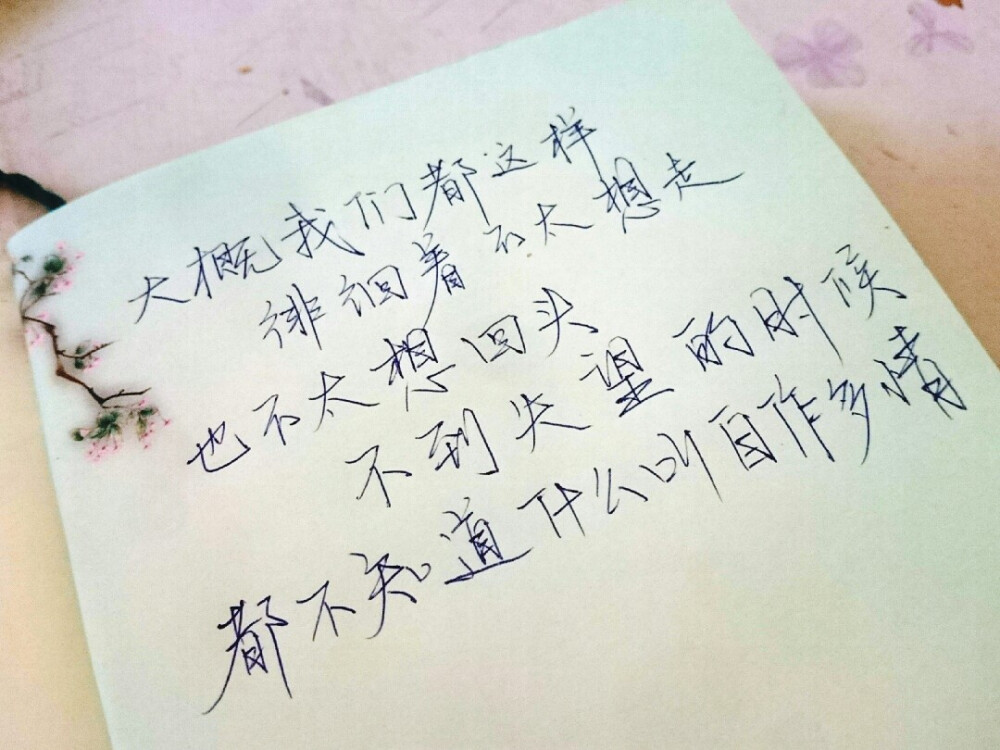 大概我们都这样
徘徊着不太想走
也不太想回头
不到失望的时候
都不知道什么叫自作多情